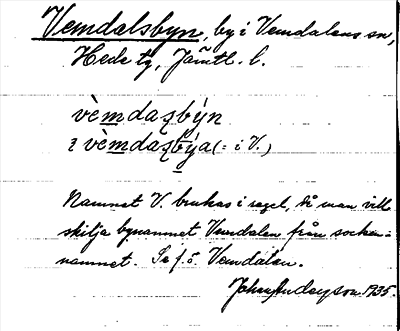 Vemdalsbyn, by i Vemdalens sn,
Hede tg, Jämtl. l.
vèmdaʂbýn
i vèmdaʂbýa (= i V.)
Namnet V. brukas i regel, då man vill
skilja bynamnet Vemdalen från socken-
namnet. Se f. ö. Vemdalen.
Johan Anderson 1935.